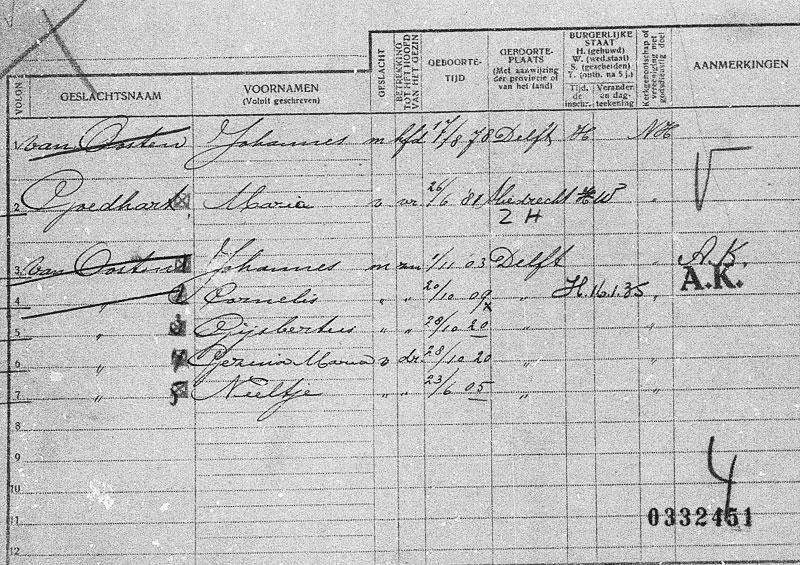 VOLGN
GESLACHTSNAAM
VOORNAMEN
(Voluit geschreven)
GESLACHT
BETREKKING TOT HET HOOFD VAN HET GEZIN
GEBOORTE-
TIJD
GEBOORTE-
PLAATS
(Met aanwijzing
der provincie of
van het land)
BURGERLIJKE
STAAT
H. (gehuwd)
W. (wed.staat)
S. (gescheiden)
T. (ontb. na 5 j.)
Tijd. de inschr.
Verander. en dag-teekening
Kerkgenootschap of vereeniging met godsdienstig doel
AANMERKINGEN
van Oosten Johannes m hfd 17/8 78 Delft H NH
2 Goedhart Maria v vr 26/6 81 Sliedrecht H W "
Z H
3 van Oosten Johannes m zn 1/11 03 Delft " A.K.
A.K.
4 " Cornelis " " 20/10 09 " H. 16.1.35 "
5 " Gijsbertus " " 28/10 20 " "
6 " Gezina Maria v dr 28/10 20 " "
7 " Neeltje " " 23/6 05 " "
8
9
10
11
4
0332451
12